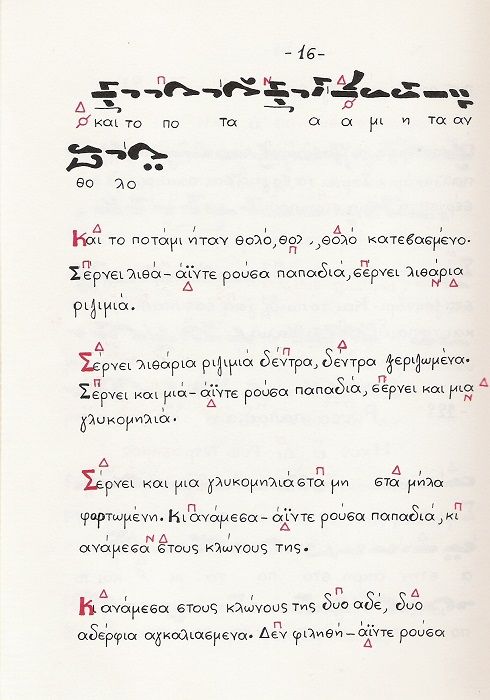 -16-
και το πο τα α α μι η τα αν
θο λο
Και το ποτάμι ήταν θολό, θολ.., θολό κατεβασμένο.
Σέρνει λιθά-άϊντε ρούσα παπαδιά, σέρνει λιθάρια
ριζιμιά.
Σέρνει λιθάρια ριζιμιά δέντρα, δέντρα ξεριζωμένα.
Σέρνει και μιά-άϊντε ρούσα παπαδιά, σέρνει και μια
γλυκομηλιά.
Σέρνει και μια γλυκομηλιά στα μη στα μήλα
φορτωμένη. Κι ανάμεσα-άϊντε ρούσα παπαδιά, κι
ανάμεσα στους κλώνους της.
Κι ανάμεσα στους κλώνους της δυο αδέ, δυο
αδέρφια αγκαλιασμενα. Δεν φιληθή-άϊντε ρούσα